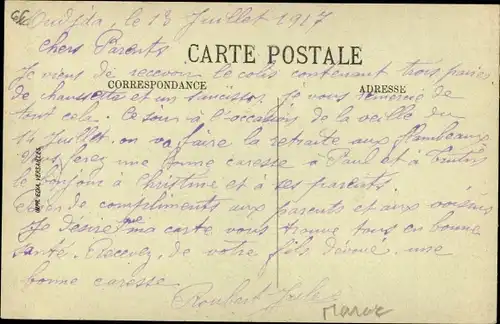 Oudjda, le 13 Juillet 1917
Chers Parents
CARTE POSTALE
Je viens de recevoir le colis contenant trois paires
CORRESPONDANCE
ADRESSE
de chaussettes et un saucisson, je vous remercie de
tout cela. Ce soir à l'occasion de la veille du
14 Juillet on va faire la retraite aux flambeaux
Vous ferez une bonne caresse à Paul et à
le bonjour à Christine et à ses parents.
de compliments aux parents et aux voisins
Je désire ma carte vous trouve tous en bonne
santé. Recevez, de votre fils dévoué, une
bonne caresse
Maroc